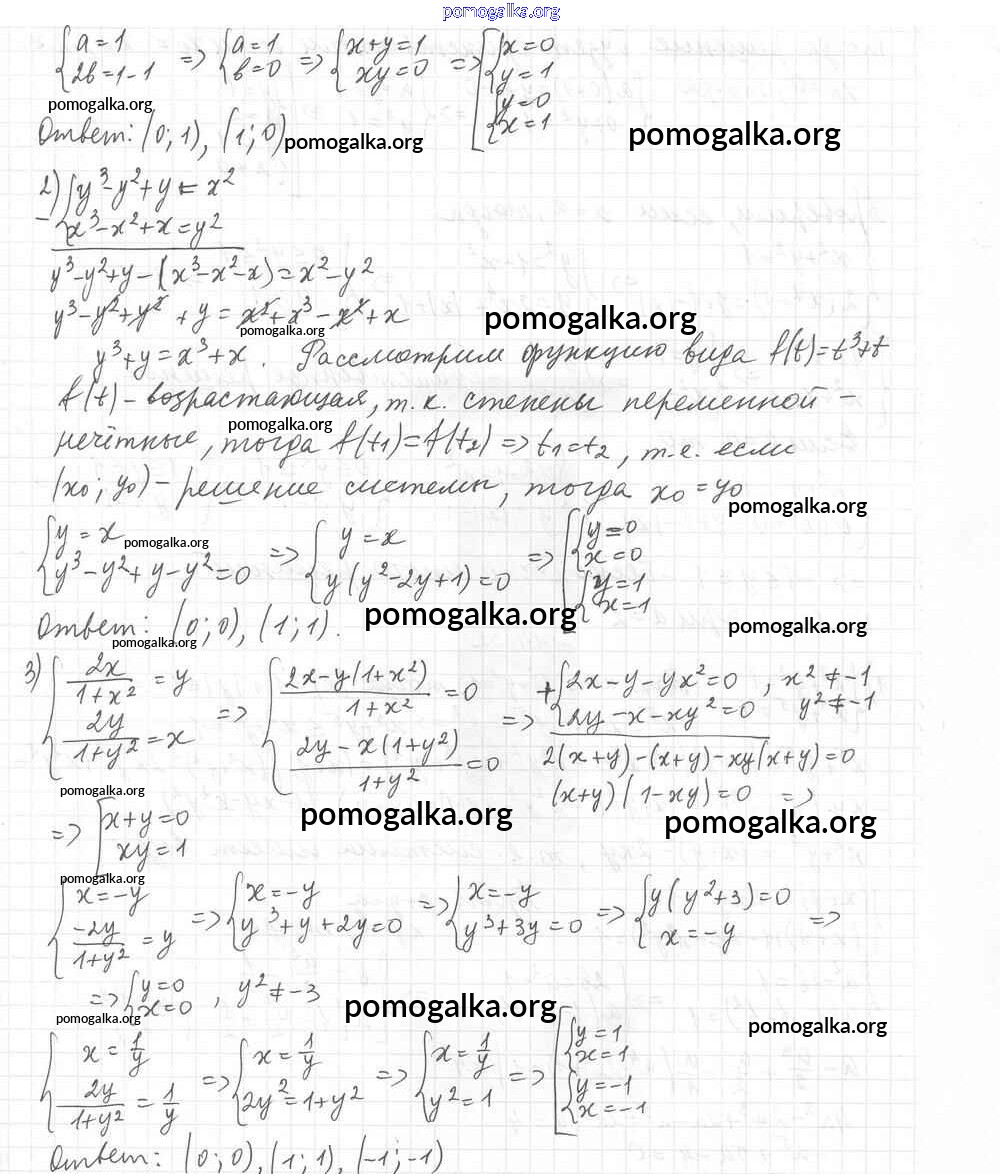 pomogalka.org
{a=1 2b=1-1 => {a=1 b=0 => {x+y=1 xy=0 => [{x=0 y=1 {y=0 x=1
pomogalka.org
Ответ: (0; 1), (1; 0) pomogalka.org pomogalka.org
2) {y³-y²+y = x²
- x³-x²+x=y²
y³-y²+y-(x³-x²-x)=x²-y²
y³-y²+y²+y = x²+x³-x²+x pomogalka.org
pomogalka.org
y³+y=x³+x. Рассмотрим функцию вида f(t)=t³+t
f(t) - возрастающая, т.к. степены переменной -
pomogalka.org
нечётные, тогда f(t₁)=f(t₂) => t₁=t₂, т.е. если
(x₀; y₀) - решение системы, тогда x₀=y₀
pomogalka.org
{y=x y³-y²+y-y²=0 => {y=x y(y²-2y+1)=0 => [{y=0 x=0 {y=1 x=1
pomogalka.org
Ответ: (0; 0), (1; 1). pomogalka.org pomogalka.org
pomogalka.org
3) {2x/(1+x²) = y 2y/(1+y²) = x => {(2x-y(1+x²))/(1+x²) = 0 (2y-x(1+y²))/(1+y²) = 0 => + {2x-y-yx²=0 2y-x-xy²=0, x²≠-1 y²≠-1
2(x+y)-(x+y)-xy(x+y)=0
(x+y)(1-xy)=0 =>
pomogalka.org
=> [x+y=0 xy=1 pomogalka.org pomogalka.org
pomogalka.org
{x=-y -2y/(1+y²) = y => {x=-y y³+y+2y=0 => {x=-y y³+3y=0 => {y(y²+3)=0 x=-y =>
=> {y=0 x=0, y²≠-3 pomogalka.org
pomogalka.org pomogalka.org
{x=1/y 2y/(1+y²) = 1/y => {x=1/y 2y²=1+y² => {x=1/y y²=1 => [{y=1 x=1 {y=-1 x=-1
Ответ: (0; 0), (1; 1), (-1; -1)